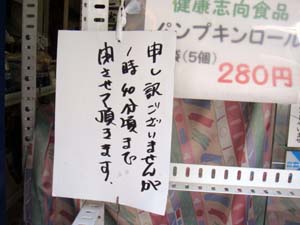 健康志向食品
パンプキンロール
袋(5個)
280円
申し訳ございませんが
1時40分頃まで
閉させて頂きます.